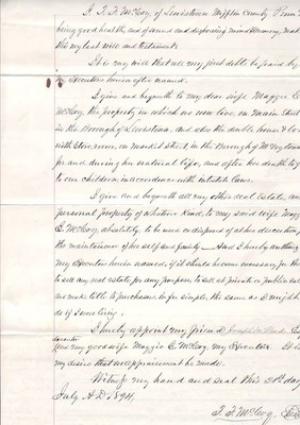 I, T. F. McCoy, of Lewistown Mifflin County Penn
being good health, and of sound and disposing mind & memory, make
this my last will and testament.
It is my will that all my just debts be paid by
my Executors herein after named.
I give and bequeath to my dear wife Maggie E
McCoy, the property in which we now live, on Main Street
in the Borough of Lewistown, and also the double house & lot
with Store room, on Market street in the Borough of McVeytown
for and during her natural life, and after her death to go
to our children in accordance with intestate laws.
I give and bequeath all my other real Estate, and
personal property of whatever kind, to my said wife Maggie
E. McCoy, absolutely, to be used or disposed of at her discretion,
the maintenance of herself and family. And I hereby authorize
my Executor herein named, if it should become necessary for them
to sell any real estate for any purpose, to sell at private or public sale
and make title to purchasers in fee simple, the same as I might
do if I were living.
I hereby appoint my friend
Executor
and my good wife Maggie E. McCoy, my Executor. It is
my desire that no appraisement be made.
Witness my hand and seal this day
July A.D. 1894.
T. F. McCoy